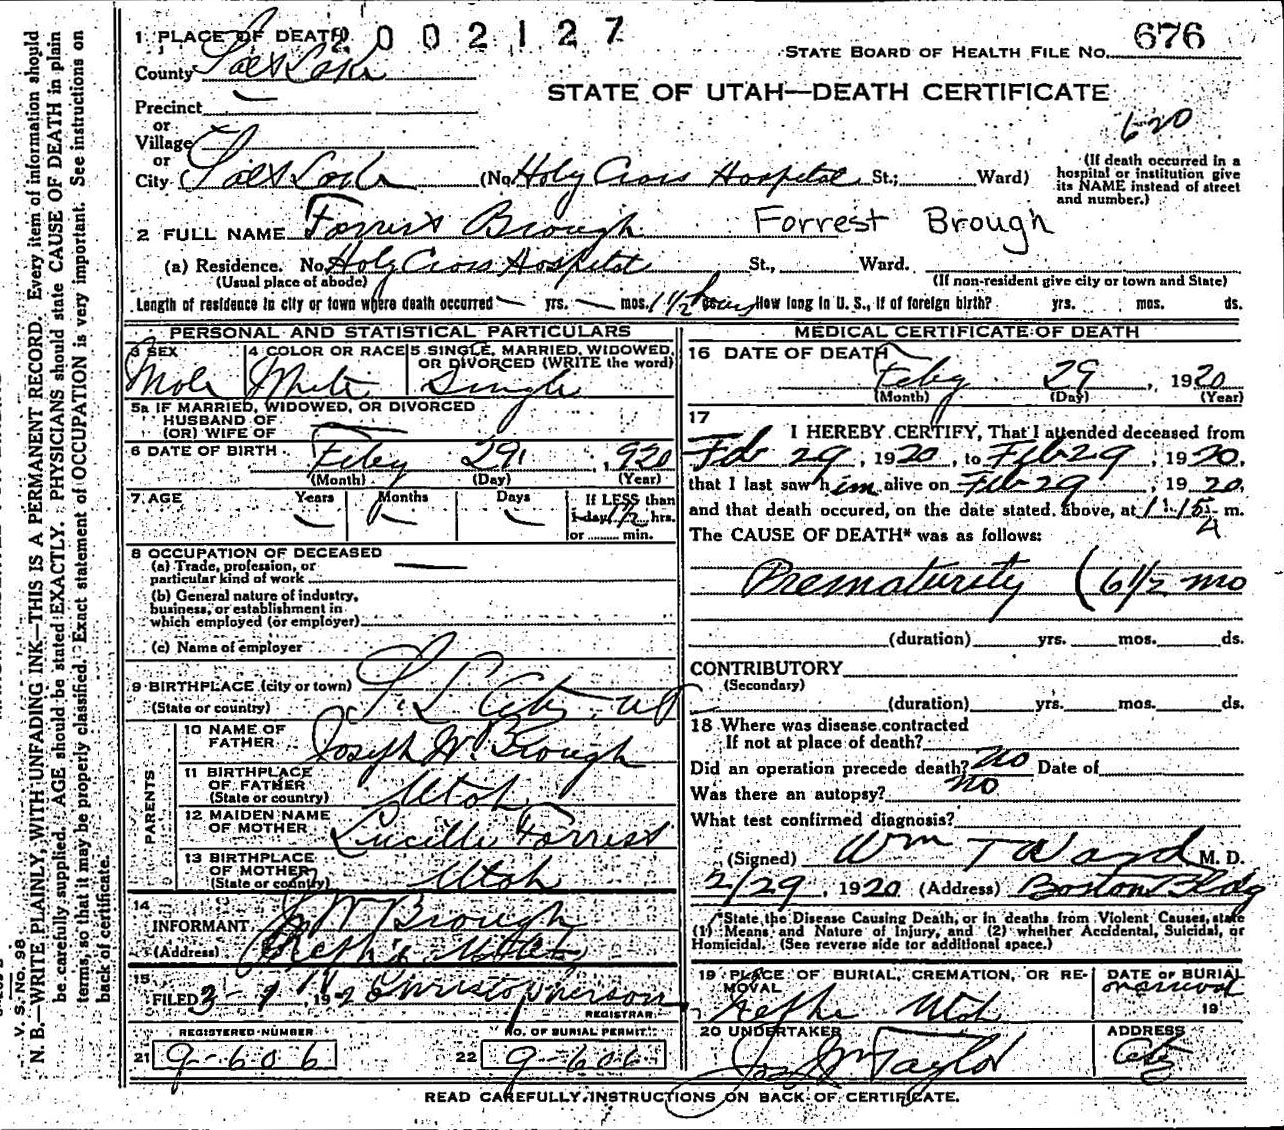 1 PLACE OF DEATH 2002127
STATE BOARD OF HEALTH FILE No. 676
County Salt Lake
STATE OF UTAH—DEATH CERTIFICATE
Precinct —
or
Village
or
620
City Salt Lake (No. Holy Cross Hospital St.; Ward)
(If death occurred in a hospital or institution give its NAME instead of street and number.)
2 FULL NAME Forrest Brough Forrest Brough
(a) Residence. No. Holy Cross Hospital St., Ward.
(Usual place of abode) (If non-resident give city or town and State)
Length of residence in city or town where death occurred — yrs. — mos. 1 1/2 hours How long in U. S., if of foreign birth? yrs. mos. ds.
PERSONAL AND STATISTICAL PARTICULARS
3 SEX Male
4 COLOR OR RACE White
5 SINGLE, MARRIED, WIDOWED, OR DIVORCED (WRITE the word) Single
5a IF MARRIED, WIDOWED, OR DIVORCED
HUSBAND OF
(OR) WIFE OF —
6 DATE OF BIRTH Feby 29, 1920
(Month) (Day) (Year)
7 AGE Years — Months — Days — If LESS than
1 day 1 1/2 hrs.
or ........ min.
8 OCCUPATION OF DECEASED
(a) Trade, profession, or
particular kind of work —
(b) General nature of industry,
business, or establishment in
which employed (or employer)
(c) Name of employer
9 BIRTHPLACE (city or town) S. L. City, Ut
(State or country)
PARENTS
10 NAME OF FATHER Joseph W. Brough
11 BIRTHPLACE OF FATHER (State or country) Utah
12 MAIDEN NAME OF MOTHER Lucille Forrest
13 BIRTHPLACE OF MOTHER (State or country) Utah
14
INFORMANT J W Brough
(Address) Nephi Utah
15
FILED 3-9, 1920 Christopherson
REGISTRAR.
REGISTERED NUMBER
21 9-606
NO. OF BURIAL PERMIT
22 9-606
MEDICAL CERTIFICATE OF DEATH
16 DATE OF DEATH
Feby 29, 1920
(Month) (Day) (Year)
17
I HEREBY CERTIFY, That I attended deceased from
Feb 29, 1920, to Feb 29, 1920,
that I last saw him alive on Feb 29, 1920,
and that death occured, on the date stated above, at 11:15 A m.
The CAUSE OF DEATH* was as follows:
Prematurity (6 1/2 mo
(duration) yrs. mos. ds.
CONTRIBUTORY
(Secondary)
(duration) yrs. mos. ds.
18 Where was disease contracted
If not at place of death?
Did an operation precede death? No Date of
Was there an autopsy? no
What test confirmed diagnosis?
(Signed) Wm T Ward M. D.
2/29, 1920 (Address) Boston Bldg
*State the Disease Causing Death, or in deaths from Violent Causes, state
(1) Means and Nature of Injury, and (2) whether Accidental, Suicidal, or
Homicidal. (See reverse side for additional space.)
19 PLACE OF BURIAL, CREMATION, OR REMOVAL
Nephi Utah
DATE OF BURIAL
on arrival
19
20 UNDERTAKER
Jos Wm Taylor
ADDRESS
City
READ CAREFULLY INSTRUCTIONS ON BACK OF CERTIFICATE.
V. S. No. 98
N. B.—WRITE PLAINLY, WITH UNFADING INK—THIS IS A PERMANENT RECORD. Every item of information should
be carefully supplied. AGE should be stated EXACTLY. PHYSICIANS should state CAUSE OF DEATH in plain
terms, so that it may be properly classified. Exact statement of OCCUPATION is very important. See instructions on
back of certificate.